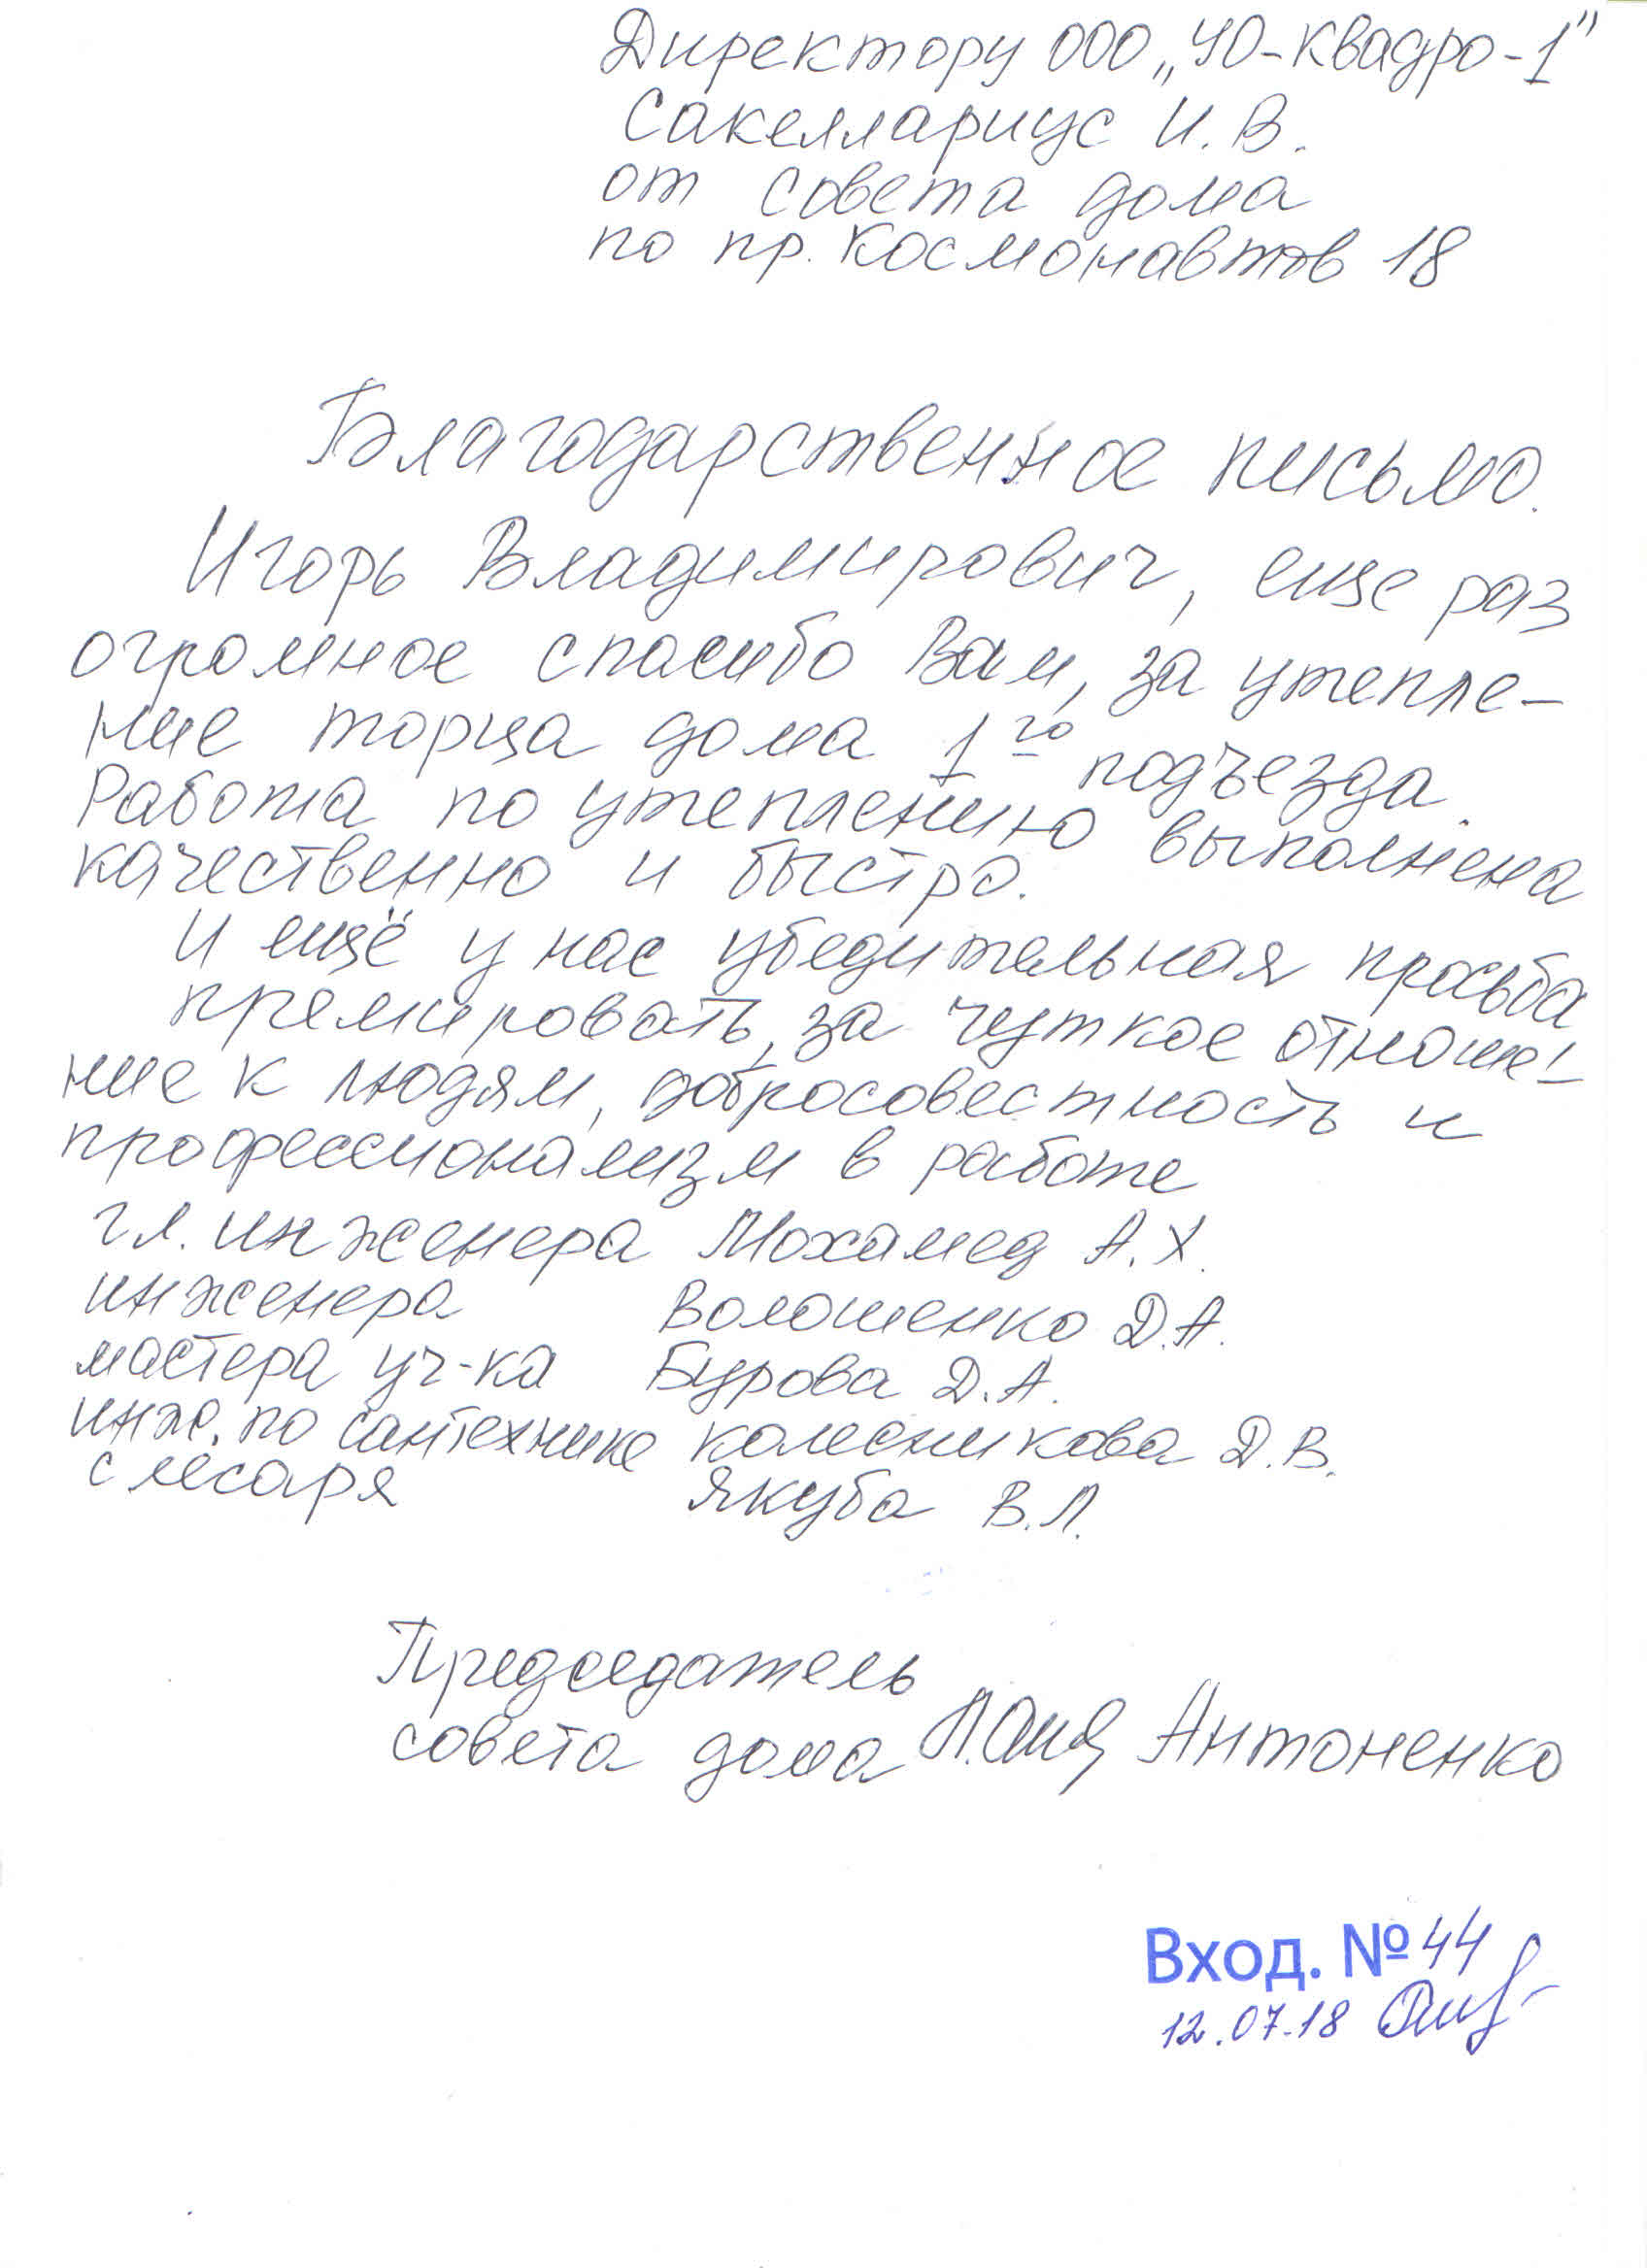 Директору ООО „УО-Квадро-1"
Сакеллариус И.В.
от совета дома
по пр. Космонавтов 18
Благодарственное письмо.
Игорь Владимирович, еще раз
огромное спасибо Вам, за утепле-
ние торца дома 1го подъезда.
Работа по утеплению выполнена
качественно и быстро.
И ещё у нас убедительная просьба
премировать, за чуткое отноше-
ние к людям, добросовестность и
профессионализм в работе
гл. инженера Мохамед А.Х.
инженера Волошенко Д.А.
мастера уч-ка Бурова Д.А.
инж. по сантехнике Колесникова Д.В.
слесаря Якуба В.Л.
Председатель
совета дома Антоненко
Вход. №44
12.07.18